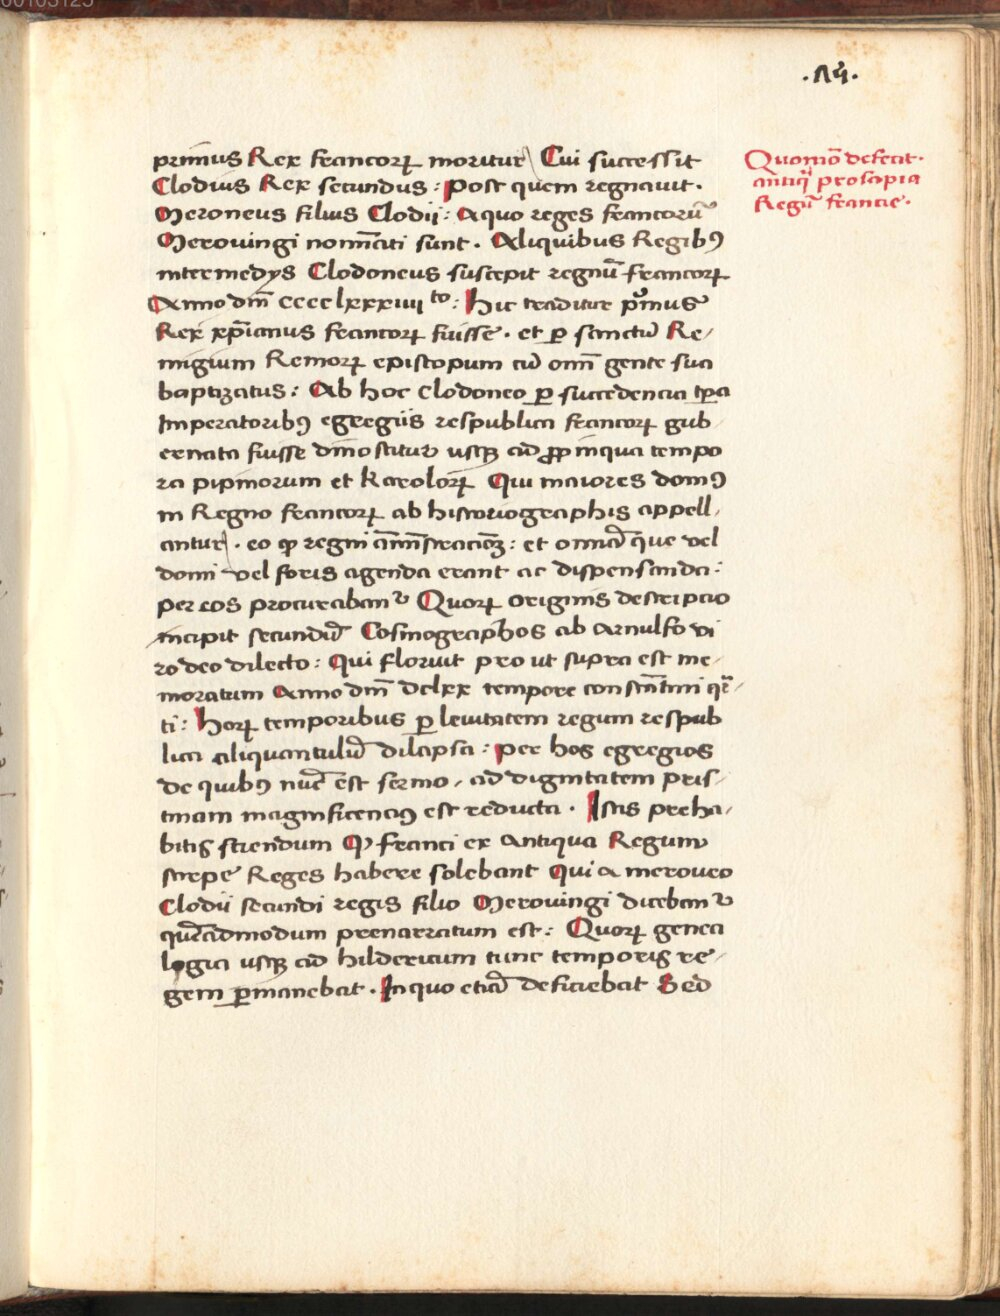 primus Rex francoꝝ moritur Cui successit
Clodius Rex secundus : Post quem regnauit ·
Meroneus filius Clodii : A quo reges francorū
Merouingi nomīati sunt · Aliquibus Regibꝰ
intermedys Clodoneus suscepit regnū francoꝝ
Anno dn̄i cccclxxxiiii to : Hic traditur pͥmus
Rex xp̄ianus francoꝝ fuisse · et ꝑ sanctū Re
migium Remoꝝ episcopum cū om̄i gente sua
baptizatus : Ab hoc Clodoneo ꝑ succedencia tꝑa
Imperatoribꝰ egregiis respublica francoꝝ gub
ernata fuisse dinoscitur usqꝫ ad ꝓpinqua tempo
ra pipinorum et Karoloꝝ Qui maiores domꝰ
in Regno francoꝝ ab historiographis appell
antur · eo ꝙ regni am̄istracioꝫ : et omīa que vel
domi vel foris agenda erant ac dispensanda :
per eos procurabant᷑ Quoꝝ originis descripcio
incipit secundū Cosmographos ab arnulfo vi
ro deo dilecto : Qui floruit pro ut supra est me
moratum Anno dn̄i dclxx tempore constātini qͬ
ti : Hoꝝ temporibus ꝑ leuitatem regum respub
lica aliquantulū dilapsa : per hos egregios
de quibꝰ nūc est sermo , ad dignitatem pris
tinam magnificenciꝰ est reducta · Istis preha
bitis sciendum Qꝫ franci ex Antiqua Regum
stirpe Reges habere solebant Qui a meroueo
Clodii secundi regis filio Merouingi dicebant᷑
quēadmodum prenarratum est : Quoꝝ genea
logia usqꝫ ad hildericum tunc temporis re
gem ꝑmanebat · In quo eciā deficiebat Sed
Quomō defecit ·
antiqͣ prosapia
Regū francie ·